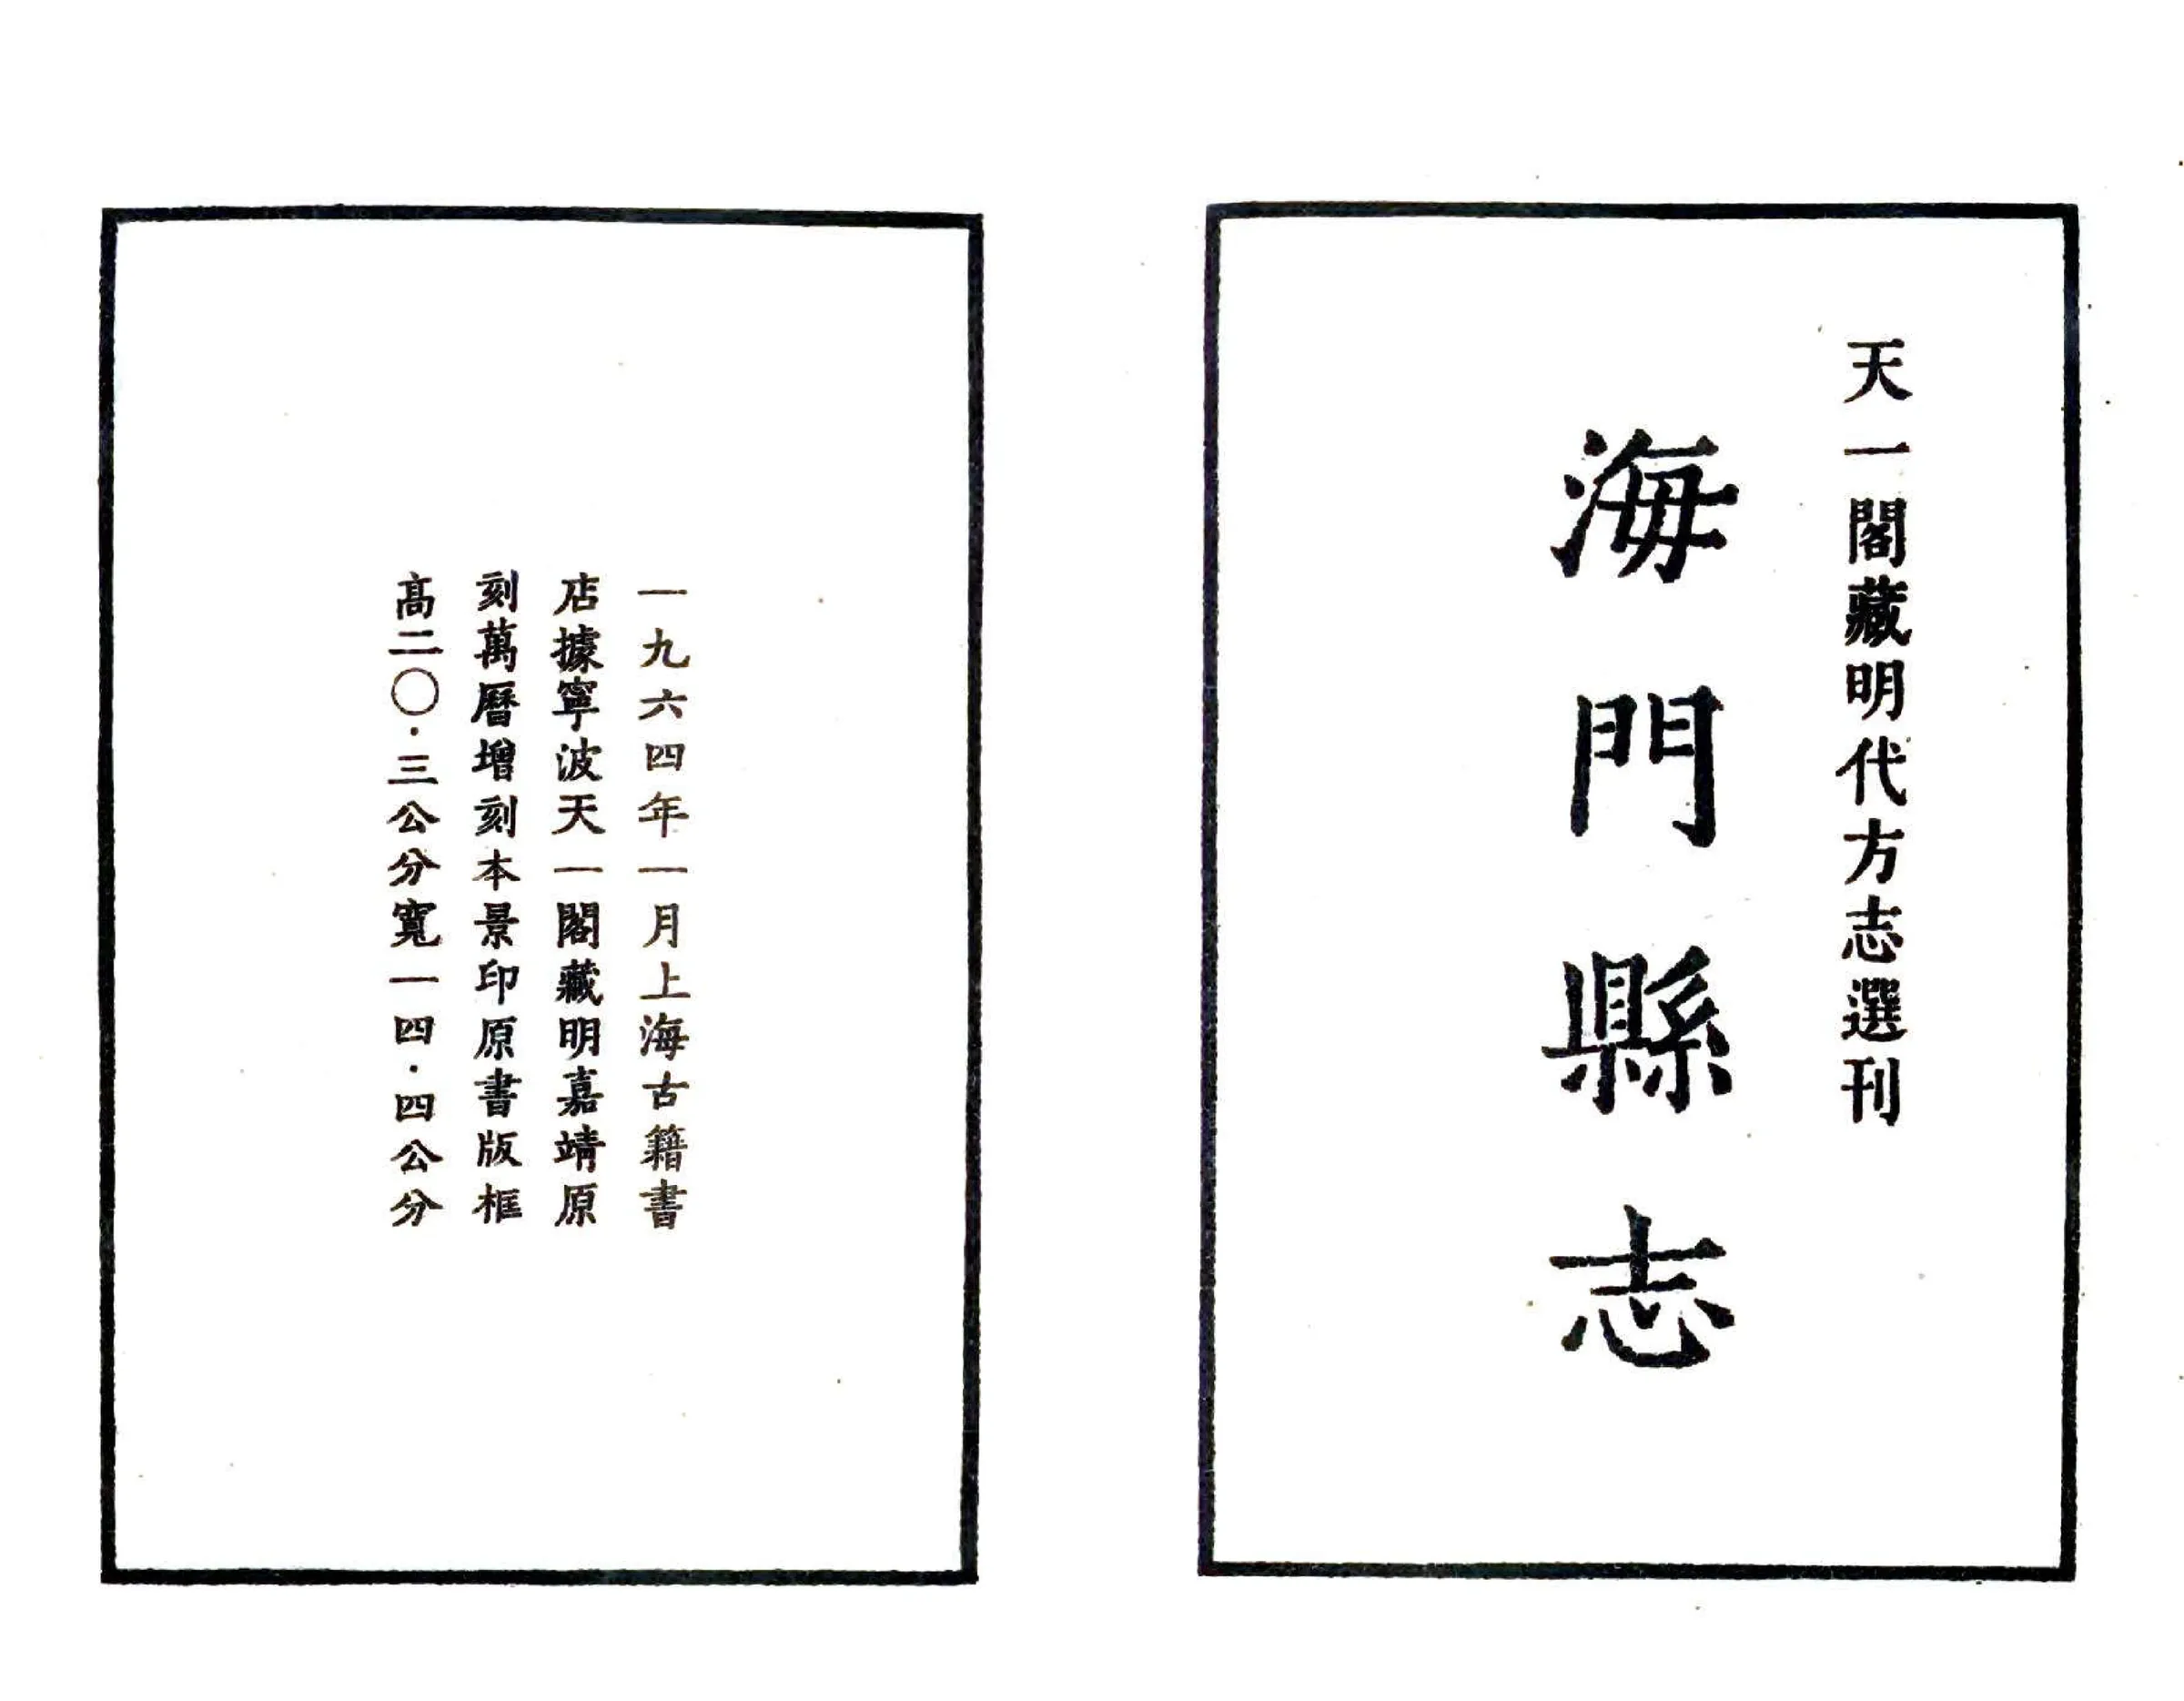 天一閣藏明代方志選刊
海門縣志
一九六四年一月上海古籍書
店據寧波天一閣藏明嘉靖原
刻萬曆增刻本景印原書版框
高二〇·三公分寬一四·四公分